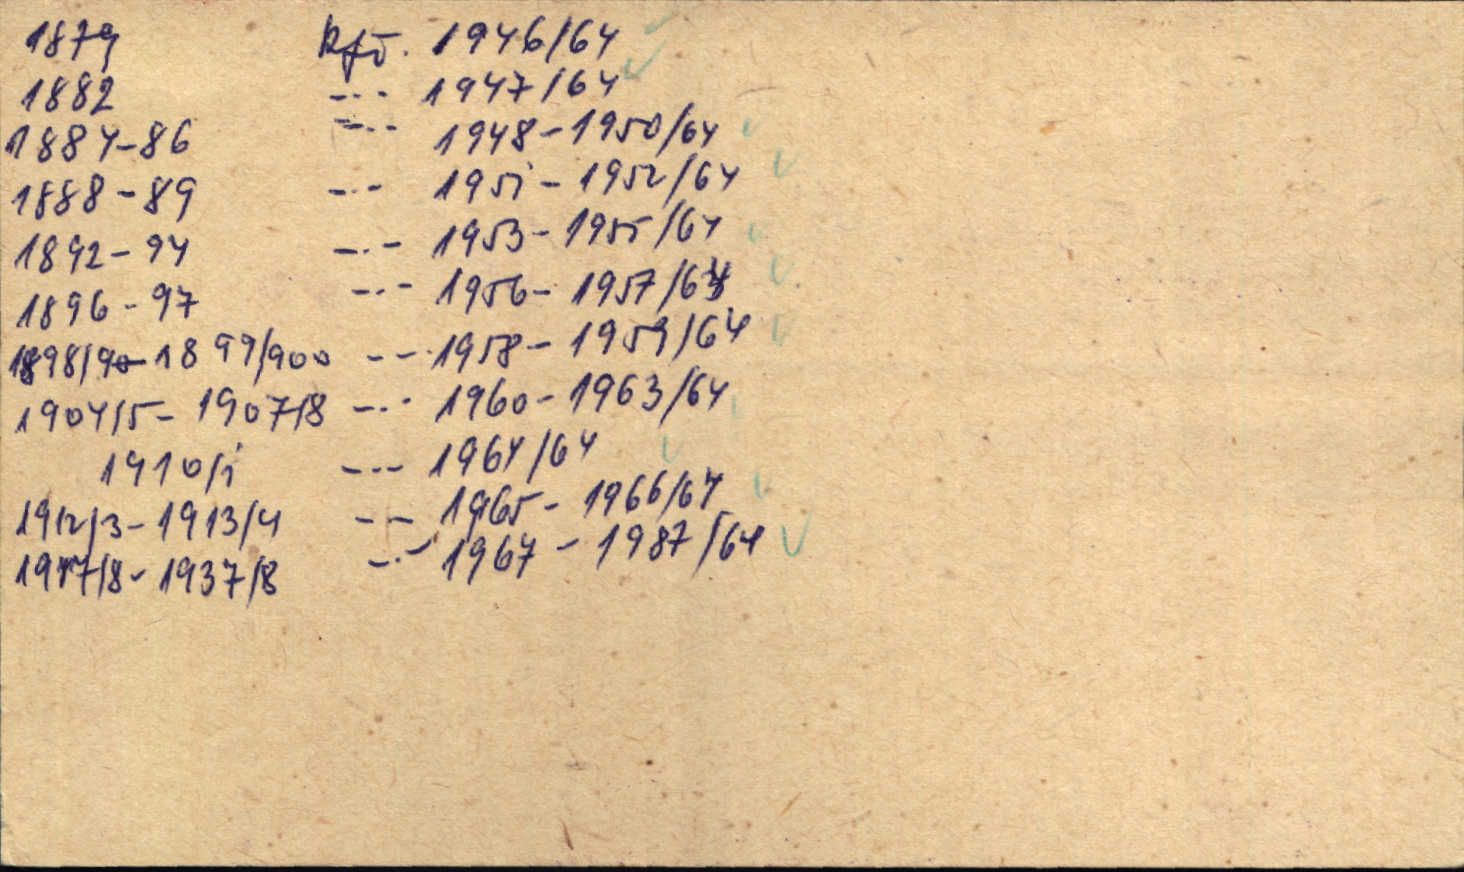 1879 kfő. 1946/64
1882 -..- 1947/64
1884-86 -..- 1948-1950/64
1888-89 -..- 1951-1952/64
1892-94 -..- 1953-1955/64
1896-97 -..- 1956-1957/64
1898/90-1899/900 -..- 1958-1959/64
1904/5-1907/8 -..- 1960-1963/64
1910/1 -..- 1964/64
1912/3-1913/4 -..- 1965-1966/64
1917/8-1937/8 -..- 1967-1987/64